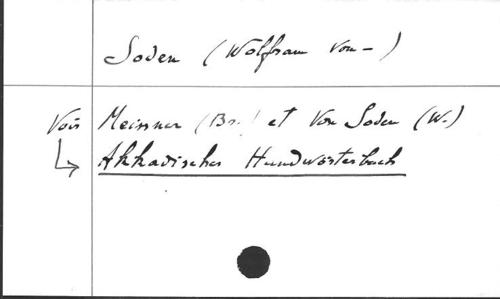 Soden (Wolfram von-)
Voir Meissner (Br.) et Von Soden (W.)
Akkadisches Handwörterbuch